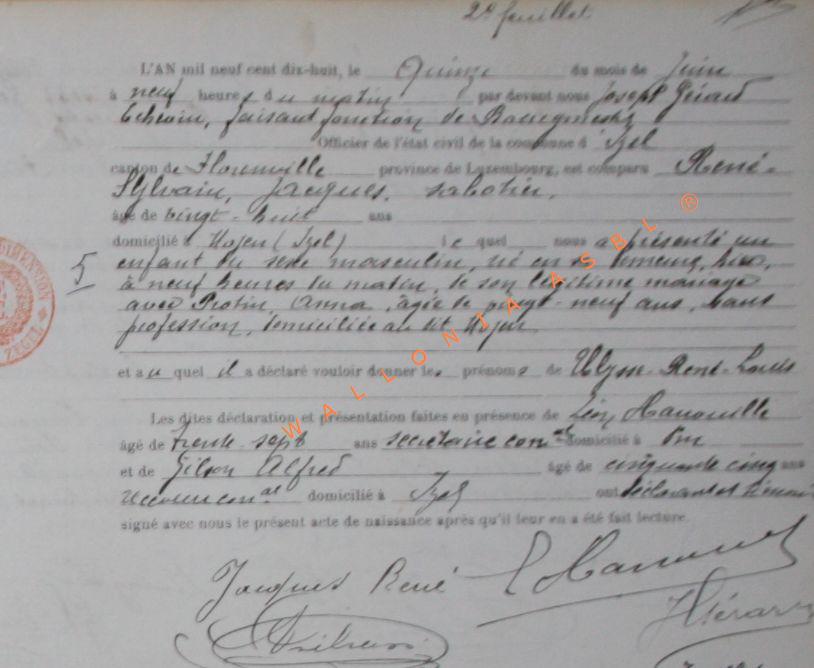 2e feuillet
L'AN mil neuf cent dix-huit, le Quinze du mois de Juin
à neuf heures du matin par devant nous Joseph Gérard
Echevin, faisant fonction de Bourgmestre
Officier de l'état civil de la commune d'Izel
canton de Florenville province de Luxembourg, est comparu René-
Sylvain, Jacques, sabotier,
âgé de vingt-huit ans
domicilié à Moyen (Izel) lequel nous a présenté un
5 enfant du sexe masculin, né en sa demeure, hier,
à neuf heures du matin, de son légitime mariage
avec Protin Anna, âgée de vingt-neuf ans, sans
profession, domiciliée au dit Moyen
et auquel il a déclaré vouloir donner les prénoms de Ulysse-René-Louis
Les dites déclaration et présentation faites en présence de Léon Hanouille
âgé de trente-sept ans secrétaire comal domicilié à
et de Gilson Alfred âgé de cinquante cinq ans
receveur comal domicilié à Izel ont déclarant et témoins
signé avec nous le présent acte de naissance après qu'il leur en a été fait lecture.
Jacques René
JGérard
WALLONIA ASBL ®
ZEGEL